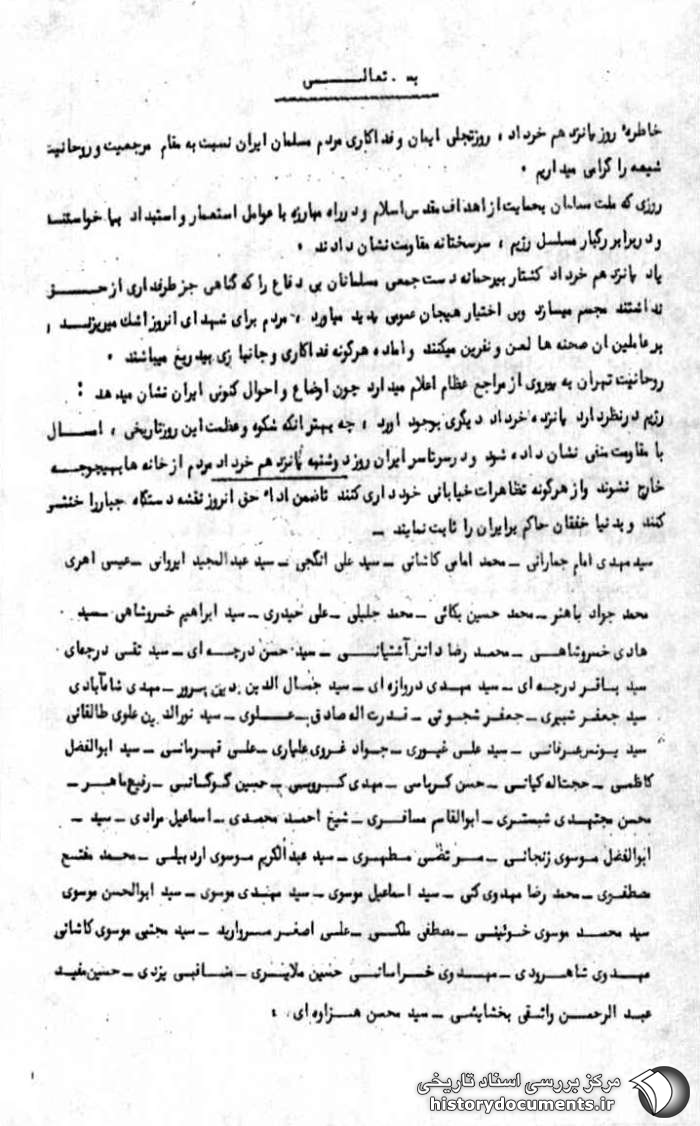 به . تعالی
خاطره' روز پانزدهم خرداد ، روزتجلی ایمان وفداکاری مردم مسلمان ایران نسبت به مقام مرجعیت وروحانیت
شیعه را گرامی میداریم .
روزی که ملت مسلمان بحمایت از اهداف مقدس اسلام ودرراه مبارزه با عوامل استعمار واستبداد بپا خواستند
ودربرابررگبار مسلسل رژیم ، سرسختانه مقاومت نشان دادند .
یاد پانزدهم خرداد کشتار بیرحمانه دست جمعی مسلمانان بی دفاع را که گناهی جز طرفداری از حق
نداشتند مجسم میسازد وبی اختیار هیجان عمومی پدید میاورد ، مردم برای شهدای انروز اشک میریزند ,
برعاملین ان صحنه ها لعن و نفرین میکنند واماده هرگونه فداکاری و جانبازی بیدریغ میباشند .
روحانیت تهران به پیروی از مراجع عظام اعلام میدارد چون اوضاع واحوال کنونی ایران نشان میدهد :
رژیم درنظردارد پانزده خرداد دیگری بوجود اورد ، چه بهترانکه شکوه وعظمت این روزتاریخی ، امسال
با مقاومت منفی نشان داده شود ودرسرتاسر ایران روز دوشنبه پانزدهم خرداد مردم ازخانه ها بهیچوجه
خارج نشوند وازهرگونه تظاهرات خیابانی خودداری کنند تاضمن اداء حق انروز نقشه دستگاه جباررا خنثی
کنند وبدنیا خفقان حاکم برایران را ثابت نمایند _
سیدمهدی امام جمارانی _ محمد امامی کاشانی _ سید علی انگجی _ سید عبدالمجید ایروانی _عیسی اهری
محمد جواد باهنر _ محمد حسین بکائی _ محمد جلیلی _ علی حیدری _ سید ابراهیم خسروشاهی _سید
هادی خسروشاهی _ محمد رضا دانش آشتیانی _ سید حسن درچه ای _ سید تقی درچه‌ای
سید باقر درچه ای _ سید مهدی دروازه ای _ سید جمال الدین دین پرور _ مهدی شاه‌آبادی
سید جعفر شبیری _ جعفر شجونی _ قدرت اله صادق _ علوی _ سید نورالدین علوی طالقانی
سید یونس عرفانی _ سید علی غیوری _ جواد غروی علیاری _ علی قهرمانی _ سید ابوالفضل
کاظمی _ حجت‌اله کیانی _ حسن کرباسی _ مهدی کروبی _ حسین گوگانی _ رفیع ماهر _
محسن مجتهدی شبستری _ ابوالقاسم مسافری _ شیخ احمد محمدی _ اسماعیل مرادی _ سید _
ابوالفضل موسوی زنجانی _ مرتضی مطهری _ سید عبدالکریم موسوی اردبیلی _ محمد مفتح
مصطفوی _ محمد رضا مهدوی کنی _ سید اسماعیل موسوی _ سید مهدی موسوی _ سید ابوالحسن موسوی
سید محمد موسوی خوئینی _ مصطفی ملکی _ علی اصغر مروارید _ سید مجتبی موسوی کاشانی
مهدوی شاهرودی _ مهدوی خراسانی حسین ملایری _ مناقبی یزدی _ حسین مفید
عبد الرحمن واثقی بخشایشی _ سید محسن هزاوه ای .
مرکز بررسی اسناد تاریخی
historydocuments.ir